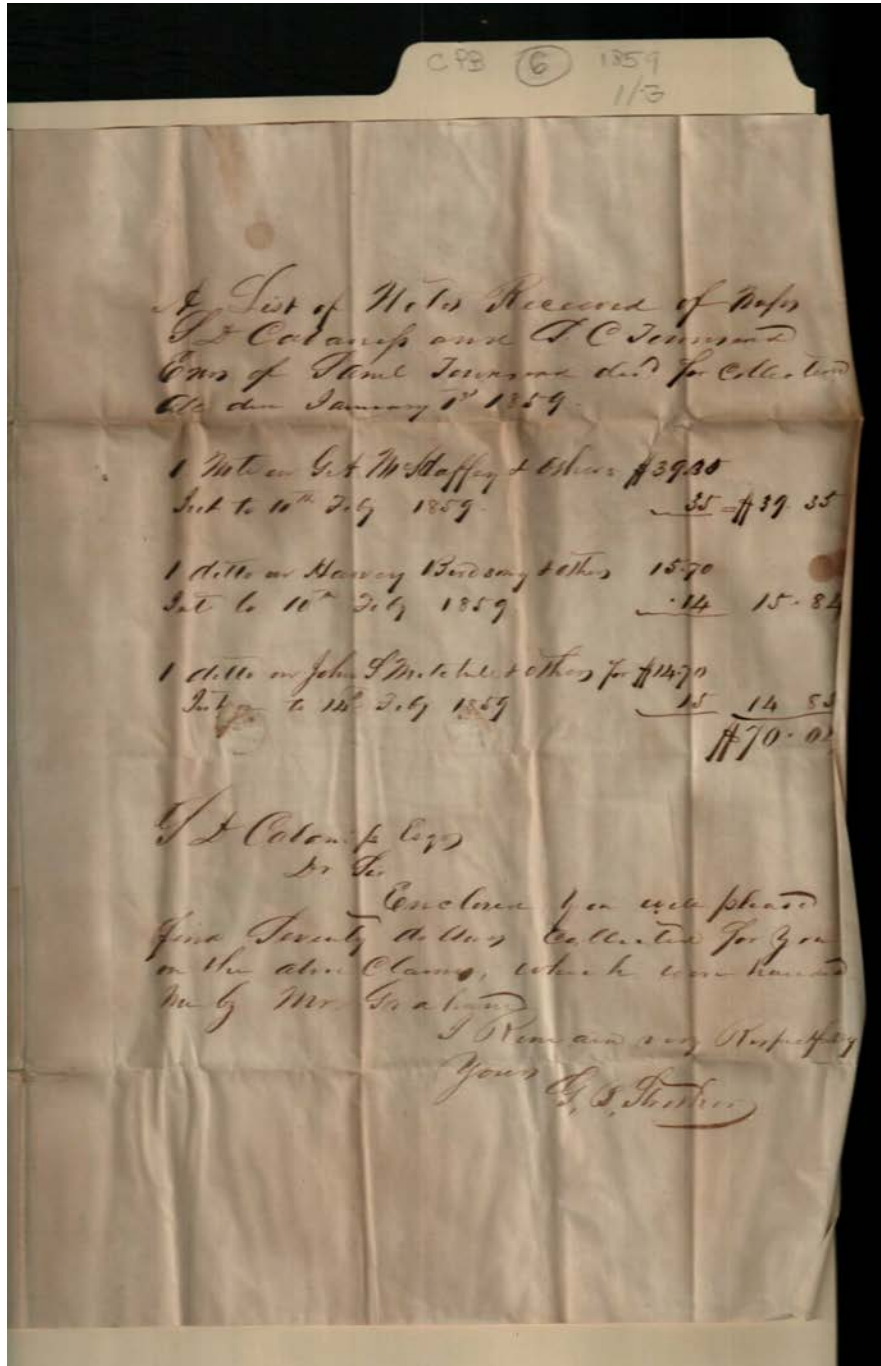 CPB 6 1859
1/3
A List of Notes Received of Messrs
S D Cabaniss and S C Townsend
Exors of Saml Townsend decd for Collection
All due January 1st 1859.
1 Note on G A McStaffey & others $39.35
Int to 10th Feby 1859. 35 = $39.35
1 ditto on Harvey Birdsong & others 15.70
Int to 10th Feby 1859 .14 15.84
1 ditto on John S & others for $14.70
Int to 14th Feby 1859 15 14 85
$70.0
S D Cabaniss Esqr
Dr Sir
Enclosed you will please
find Seventy dollars Collected for you
on the above Claims, which were handed
me by Mr Graham
I Remain very Respectfully
Yours
G. S.